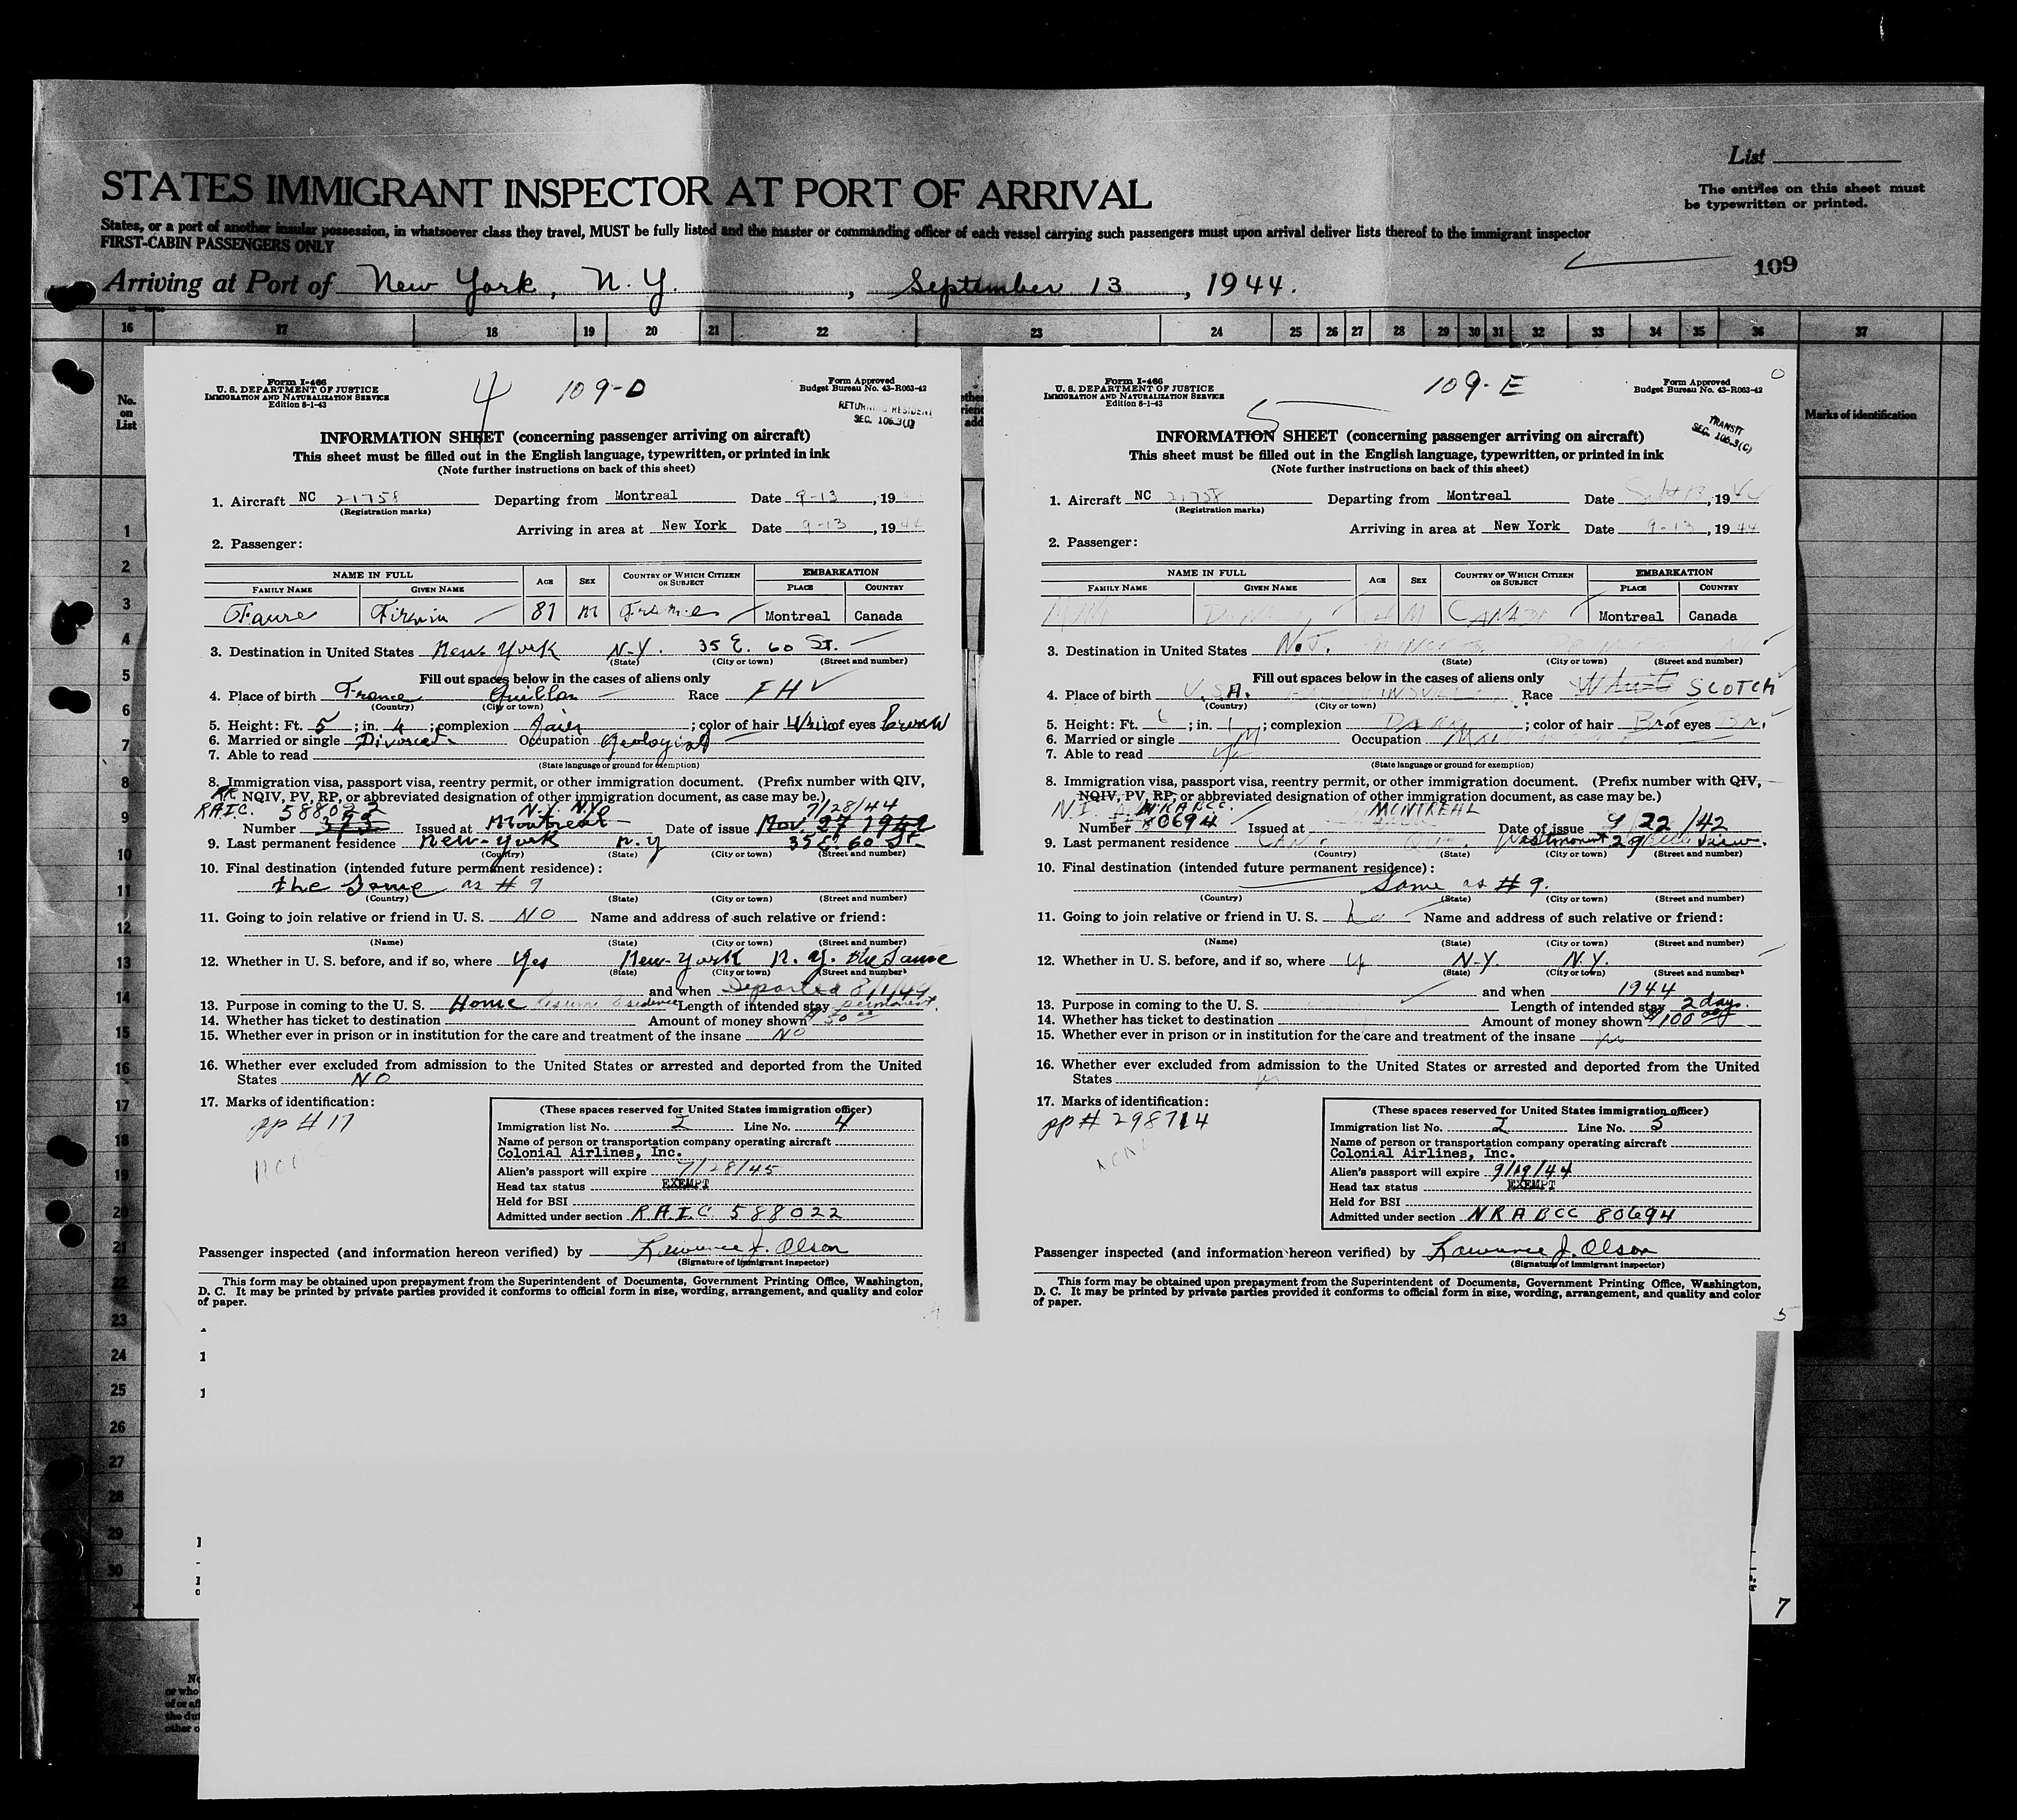 List
STATES IMMIGRANT INSPECTOR AT PORT OF ARRIVAL
The entries on this sheet must
be typewritten or printed.
States, or a port of another insular possession, in whatsoever class they travel, MUST be fully listed and the master or commanding officer of each vessel carrying such passengers must upon arrival deliver lists thereof to the immigrant inspector
FIRST-CABIN PASSENGERS ONLY
109
Arriving at Port of New York, N.Y., September 13, 1944.
16 17 18 19 20 21 22 23 24 25 26 27 28 29 30 31 32 33 34 35 36 37
No. on List
Marks of identification
1
2
3
4
5
6
7
8
9
10
11
12
13
14
15
16
17
18
19
20
21
22
23
24
25
26
27
28
29
30
Form I-466
U. S. DEPARTMENT OF JUSTICE
IMMIGRATION AND NATURALIZATION SERVICE
Edition 8-1-43
4 109-D
Form Approved
Budget Bureau No. 43-R063-42
RETURNING RESIDENT
SEC. 106.3(1)
INFORMATION SHEET (concerning passenger arriving on aircraft)
This sheet must be filled out in the English language, typewritten, or printed in ink
(Note further instructions on back of this sheet)
1. Aircraft NC 21758 Departing from Montreal Date 9-13, 19
(Registration marks)
Arriving in area at New York Date 9-13, 1944
2. Passenger:
NAME IN FULL AGE SEX COUNTRY OF WHICH CITIZEN OR SUBJECT EMBARKATION
FAMILY NAME GIVEN NAME PLACE COUNTRY
Faure Firmin 81 M France Montreal Canada
3. Destination in United States New York N-Y. 35 E. 60 St.
(State) (City or town) (Street and number)
Fill out spaces below in the cases of aliens only
4. Place of birth France Quillan Race F H
(Country) (City or town)
5. Height: Ft. 5; in. 4; complexion fair; color of hair of eyes Brown
6. Married or single Divorced Occupation Geologist
7. Able to read
(State language or ground for exemption)
8. Immigration visa, passport visa, reentry permit, or other immigration document. (Prefix number with QIV,
NQIV, PV, RP, or abbreviated designation of other immigration document, as case may be.)
RAIC. 588022 N.Y. N.Y. 7/28/44
Number 313 Issued at Montreal Date of issue Nov. 27
9. Last permanent residence New-York N.Y 35 E. 60 St.
(Country) (State) (City or town) (Street and number)
10. Final destination (intended future permanent residence):
the Same as # 9
(Country) (State) (City or town) (Street and number)
11. Going to join relative or friend in U. S. NO Name and address of such relative or friend:
(Name) (State) (City or town) (Street and number)
12. Whether in U. S. before, and if so, where Yes New-York N.Y. the Same
(State) (City or town) (Street and number)
and when Departed
13. Purpose in coming to the U. S. Home Resume residence Length of intended stay permanent
14. Whether has ticket to destination Amount of money shown
15. Whether ever in prison or in institution for the care and treatment of the insane NO
16. Whether ever excluded from admission to the United States or arrested and deported from the United
States NO
17. Marks of identification:
pp # 17
none
(These spaces reserved for United States immigration officer)
Immigration list No. I Line No. 4
Name of person or transportation company operating aircraft
Colonial Airlines, Inc.
Alien's passport will expire 7/28/45
Head tax status EXEMPT
Held for BSI
Admitted under section R.A.I.C. 588022
Passenger inspected (and information hereon verified) by Lawrence J. Olson
(Signature of immigrant inspector)
This form may be obtained upon prepayment from the Superintendent of Documents, Government Printing Office, Washington,
D. C. It may be printed by private parties provided it conforms to official form in size, wording, arrangement, and quality and color
of paper.
Form I-466
U. S. DEPARTMENT OF JUSTICE
IMMIGRATION AND NATURALIZATION SERVICE
Edition 8-1-43
5 109-E
Form Approved
Budget Bureau No. 43-R063-42
TRANSIT
SEC. 106.3(C)
INFORMATION SHEET (concerning passenger arriving on aircraft)
This sheet must be filled out in the English language, typewritten, or printed in ink
(Note further instructions on back of this sheet)
1. Aircraft NC 21758 Departing from Montreal Date Sept 13, 1944
(Registration marks)
Arriving in area at New York Date 9-13, 1944
2. Passenger:
NAME IN FULL AGE SEX COUNTRY OF WHICH CITIZEN OR SUBJECT EMBARKATION
FAMILY NAME GIVEN NAME PLACE COUNTRY
M CANADA Montreal Canada
3. Destination in United States N.J.
(State) (City or town) (Street and number)
Fill out spaces below in the cases of aliens only
4. Place of birth U.S.A. Race White SCOTCH
(Country) (City or town)
5. Height: Ft. 6; in. 1; complexion DARK; color of hair Br. of eyes Br.
6. Married or single M Occupation
7. Able to read
(State language or ground for exemption)
8. Immigration visa, passport visa, reentry permit, or other immigration document. (Prefix number with QIV,
NQIV, PV, RP, or abbreviated designation of other immigration document, as case may be.)
N.I. NRABCC. MONTREAL
Number 80694 Issued at Date of issue 9/22/42
9. Last permanent residence CAN. Que. Westmount 29 view.
(Country) (State) (City or town) (Street and number)
10. Final destination (intended future permanent residence):
Same as # 9.
(Country) (State) (City or town) (Street and number)
11. Going to join relative or friend in U. S. no Name and address of such relative or friend:
(Name) (State) (City or town) (Street and number)
12. Whether in U. S. before, and if so, where N-Y. N.Y.
(State) (City or town) (Street and number)
and when 1944
13. Purpose in coming to the U. S. Length of intended stay 2 days.
14. Whether has ticket to destination Amount of money shown $100
15. Whether ever in prison or in institution for the care and treatment of the insane
16. Whether ever excluded from admission to the United States or arrested and deported from the United
States
17. Marks of identification:
pp # 298714
(These spaces reserved for United States immigration officer)
Immigration list No. I Line No. 5
Name of person or transportation company operating aircraft
Colonial Airlines, Inc.
Alien's passport will expire 9/19/44
Head tax status EXEMPT
Held for BSI
Admitted under section NRABCC 80694
Passenger inspected (and information hereon verified) by Lawrence J. Olson
(Signature of immigrant inspector)
This form may be obtained upon prepayment from the Superintendent of Documents, Government Printing Office, Washington,
D. C. It may be printed by private parties provided it conforms to official form in size, wording, arrangement, and quality and color
of paper.
5
7